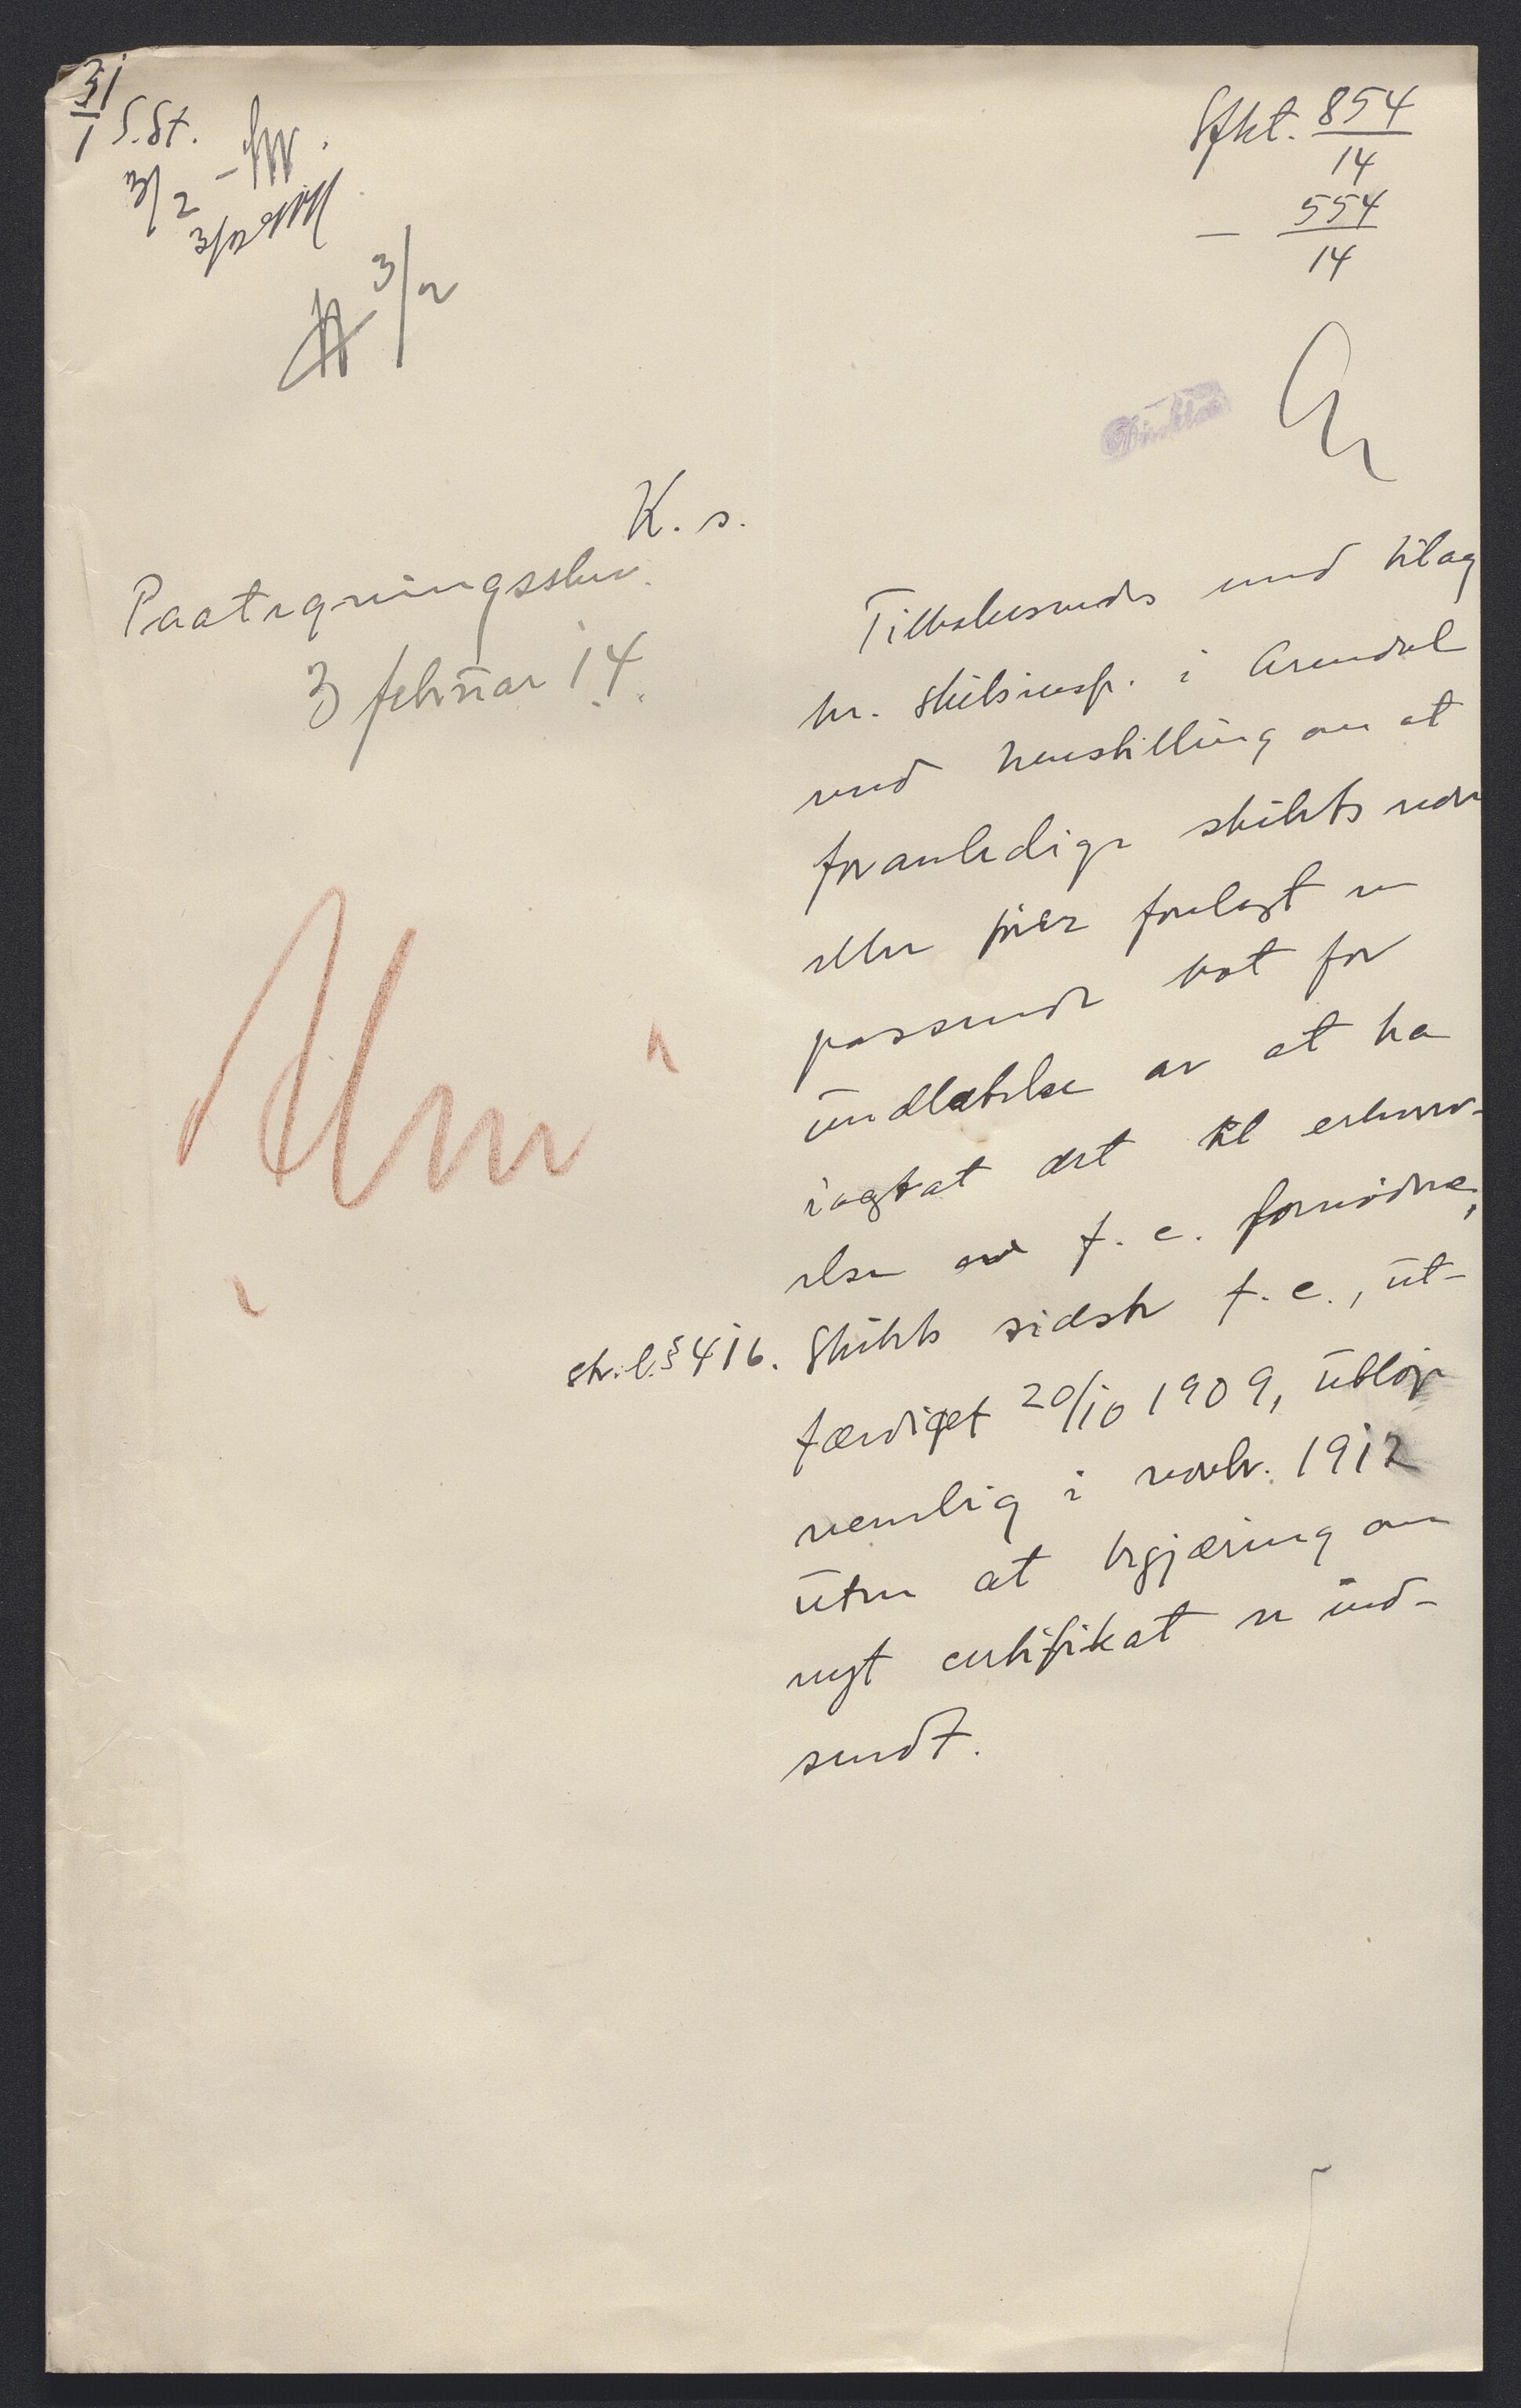 31/1 S.St.
3/2
3/2
Sfkt. 854/14
— 554/14
K. s.
Paategningsskr.
3 februar 14.
Tilbakesendes med bilag
hr. skibsinsp. i Arendal
med henstilling om at
foranledige skibets reder
eller fører forelagt en
passende bot for
undlatelse av at ha
iagtat det til erhverv-
else av f. c. fornødne,
sk. l. § 416.
Skibets sidste f. c., ut-
færdiget 20/10 1909, utløp
nemlig i novbr. 1912
uten at begjæring om
nyt certifikat er ind-
sendt.